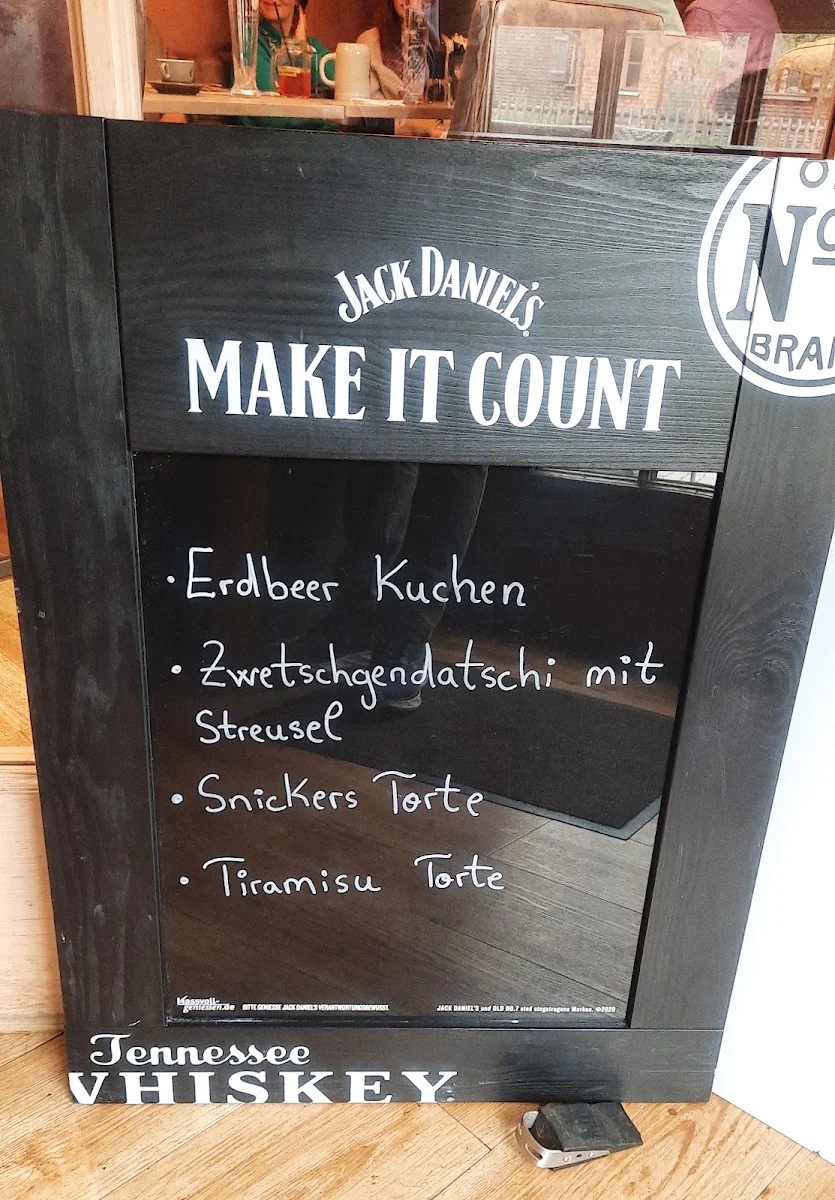 JACK DANIEL'S
MAKE IT COUNT
No
BRA
• Erdbeer Kuchen
• Zwetschgendatschi mit
Streusel
• Snickers Torte
• Tiramisu Torte
Massvoll-
geniessen.de
BITTE GENIESSE JACK DANIEL'S VERANTWORTUNGSBEWUSST.
JACK DANIEL'S und OLD NO.7 sind eingetragene Marken. ©2020
Tennessee
WHISKEY